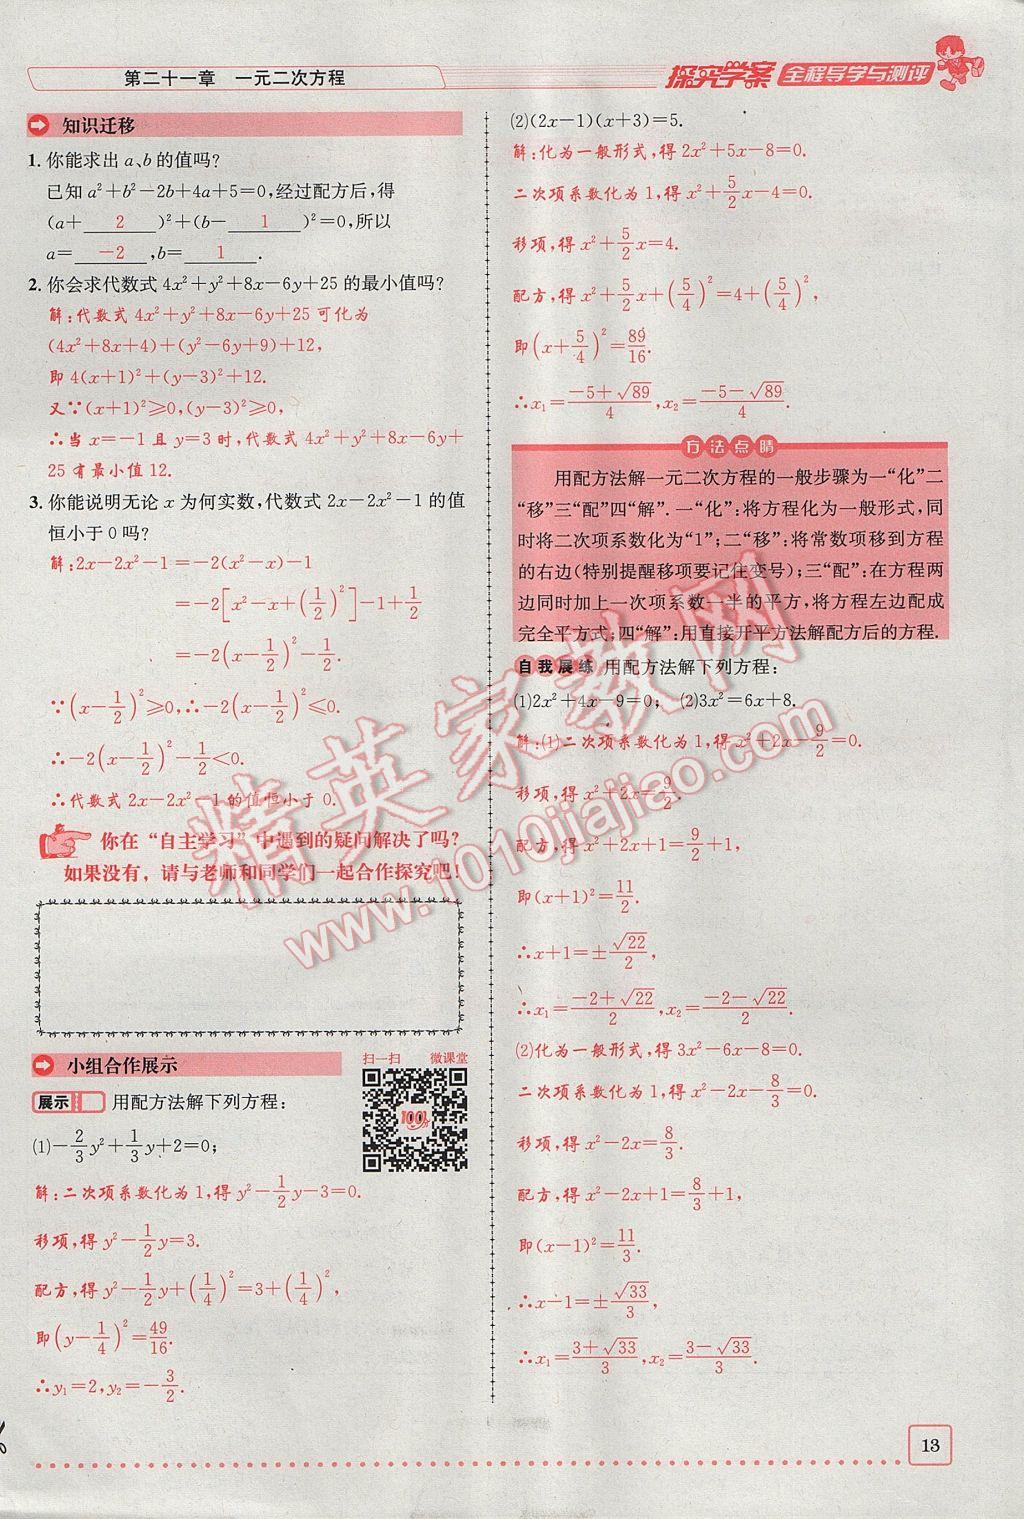 第二十一章 一元二次方程
探究学案 全程导学与测评
知识迁移
1. 你能求出 a、b 的值吗?
已知 a²+b²-2b+4a+5=0,经过配方后,得
(a+ 2 )²+(b- 1 )²=0,所以
a= -2 ,b= 1 .
2. 你会求代数式 4x²+y²+8x-6y+25 的最小值吗?
解:代数式 4x²+y²+8x-6y+25 可化为
(4x²+8x+4)+(y²-6y+9)+12,
即 4(x+1)²+(y-3)²+12.
又∵(x+1)²≥0,(y-3)²≥0,
∴当 x=-1 且 y=3 时,代数式 4x²+y²+8x-6y+
25 有最小值 12.
3. 你能说明无论 x 为何实数,代数式 2x-2x²-1 的值
恒小于 0 吗?
解:2x-2x²-1=-2(x²-x)-1
=-2[x²-x+(1/2)²]-1+1/2
=-2(x-1/2)²-1/2.
∵(x-1/2)²≥0,∴-2(x-1/2)²≤0.
∴-2(x-1/2)²-1/2<0.
∴代数式 2x-2x²-1 的值恒小于 0.
你在“自主学习”中遇到的疑问解决了吗?
如果没有,请与老师和同学们一起合作探究吧!
小组合作展示
扫一扫 微课堂
100
展示 用配方法解下列方程:
(1)-2/3y²+1/3y+2=0;
解:二次项系数化为 1,得 y²-1/2y-3=0.
移项,得 y²-1/2y=3.
配方,得 y²-1/2y+(1/4)²=3+(1/4)²,
即(y-1/4)²=49/16.
∴y₁=2,y₂=-3/2.
(2)(2x-1)(x+3)=5.
解:化为一般形式,得 2x²+5x-8=0.
二次项系数化为 1,得 x²+5/2x-4=0.
移项,得 x²+5/2x=4.
配方,得 x²+5/2x+(5/4)²=4+(5/4)²,
即(x+5/4)²=89/16.
∴x₁=(-5+√89)/4,x₂=(-5-√89)/4.
方法点睛
用配方法解一元二次方程的一般步骤为一“化”二
“移”三“配”四“解”.一“化”:将方程化为一般形式,同
时将二次项系数化为“1”;二“移”:将常数项移到方程
的右边(特别提醒移项要记住变号);三“配”:在方程两
边同时加上一次项系数一半的平方,将方程左边配成
完全平方式;四“解”:用直接开平方法解配方后的方程.
自我展练 用配方法解下列方程:
(1)2x²+4x-9=0; (2)3x²=6x+8.
解:(1)二次项系数化为 1,得 x²+2x-9/2=0.
移项,得 x²+2x=9/2.
配方,得 x²+2x+1=9/2+1,
即(x+1)²=11/2.
∴x+1=±√22/2,
∴x₁=(-2+√22)/2,x₂=(-2-√22)/2.
(2)化为一般形式,得 3x²-6x-8=0.
二次项系数化为 1,得 x²-2x-8/3=0.
移项,得 x²-2x=8/3.
配方,得 x²-2x+1=8/3+1,
即(x-1)²=11/3.
∴x-1=±√33/3,
∴x₁=(3+√33)/3,x₂=(3-√33)/3.
精英家教网
www.1010jiajiao.com
13